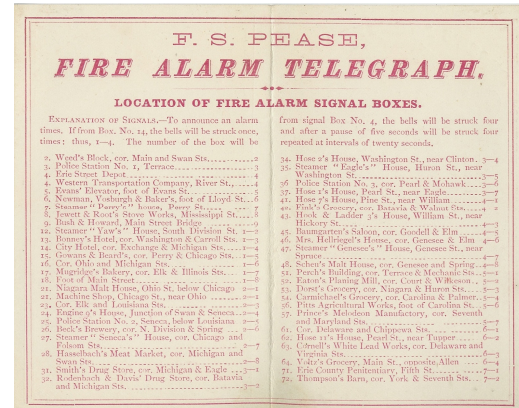 F. S. PEASE,
FIRE ALARM TELEGRAPH.
LOCATION OF FIRE ALARM SIGNAL BOXES.
EXPLANATION OF SIGNALS.—To announce an alarm
times. If from Box. No. 14, the bells will be struck once,
times; thus, 1—4. The number of the box will be
2. Weed's Block, cor. Main and Swan Sts. 2
3. Police Station No. 1, Terrace 3
4. Erie Street Depot 4
4. Western Transportation Company, River St., 4
5. Evans' Elevator, foot of Evans St. 5
6. Newman, Vosburgh & Baker's, foot of Lloyd St. 6
7. Steamer "Perry's" house, Perry St. 7
8. Jewett & Root's Stove Works, Mississippi St. 8
9. Bush & Howard, Main Street Bridge 9
12. Steamer "Yaw's" House, South Division St. 1—2
13. Bonney's Hotel, cor. Washington & Carroll Sts. 1—3
14. City Hotel, cor. Exchange & Michigan Sts. 1—4
15. Gowans & Beard's, cor. Perry & Chicago Sts. 1—5
16. Cor. Ohio and Michigan Sts. 1—6
17. Mugridge's Bakery, cor. Elk & Illinois Sts. 1—7
18. Foot of Main Street 1—8
21. Niagara Malt House, Ohio St. below Chicago 2—1
21. Machine Shop, Chicago St., near Ohio 2—1
23. Cor. Elk and Louisiana Sts. 2—3
24. Engine 9's House, Junction of Swan & Seneca 2—4
25. Police Station No. 2, Seneca, below Louisiana 2—5
26. Beck's Brewery, cor. N. Division & Spring 2—6
27. Steamer "Seneca's" House, cor. Chicago and
Folsom Sts. 2—7
28. Hasselbach's Meat Market, cor. Michigan and
Swan Sts. 2—8
31. Smith's Drug Store, cor. Michigan & Eagle 3—1
32. Rodenbach & Davis' Drug Store, cor. Batavia
and Michigan Sts. 3—2
from signal Box No. 4, the bells will be struck four
and after a pause of five seconds will be struck four
repeated at intervals of twenty seconds.
34. Hose 2's House, Washington St., near Clinton 3—4
35. Steamer "Eagle's" House, Huron St., near
Washington St. 3—5
36 Police Station No. 3, cor. Pearl & Mohawk 3—6
37. Hose 1's House, Pearl St., near Eagle 3—7
41. Hose 7's House, Pine St., near William 4—1
42. Fink's Grocery, cor. Batavia & Walnut Sts. 4—2
43. Hook & Ladder 3's House, William St., near
Hickory St. 4—3
45. Baumgarten's Saloon, cor. Goodell & Elm 4—5
46. Mrs. Hellriegel's House, cor. Genesee & Elm 4—6
47. Steamer "Genesee's" House, Genesee St., near
Spruce 4—7
48. Schen's Malt House, cor. Genesee and Spring 4—8
51. Perch's Building, cor. Terrace & Mechanic Sts 5—1
52. Eaton's Planing Mill, cor. Court & Wilkeson 5—2
53. Dorst's Grocery, cor. Niagara & Huron Sts. 5—3
54. Carmichael's Grocery, cor. Carolina & Palmer 5—4
56. Pitts Agricultural Works, foot of Carolina St. 5—6
57. Prince's Melodeon Manufactory, cor. Seventh
and Maryland Sts. 5—7
61. Cor. Delaware and Chippewa Sts. 6—1
62. Hose 11's House, Pearl St., near Tupper 6—2
63. Cornell's White Lead Works, cor. Delaware and
Virginia Sts. 6—3
64. Voltz's Grocery, Main St., opposite, Allen 6—4
71. Erie County Penitentiary, Fifth St. 7—1
72. Thompson's Barn, cor. York & Seventh Sts. 7—2